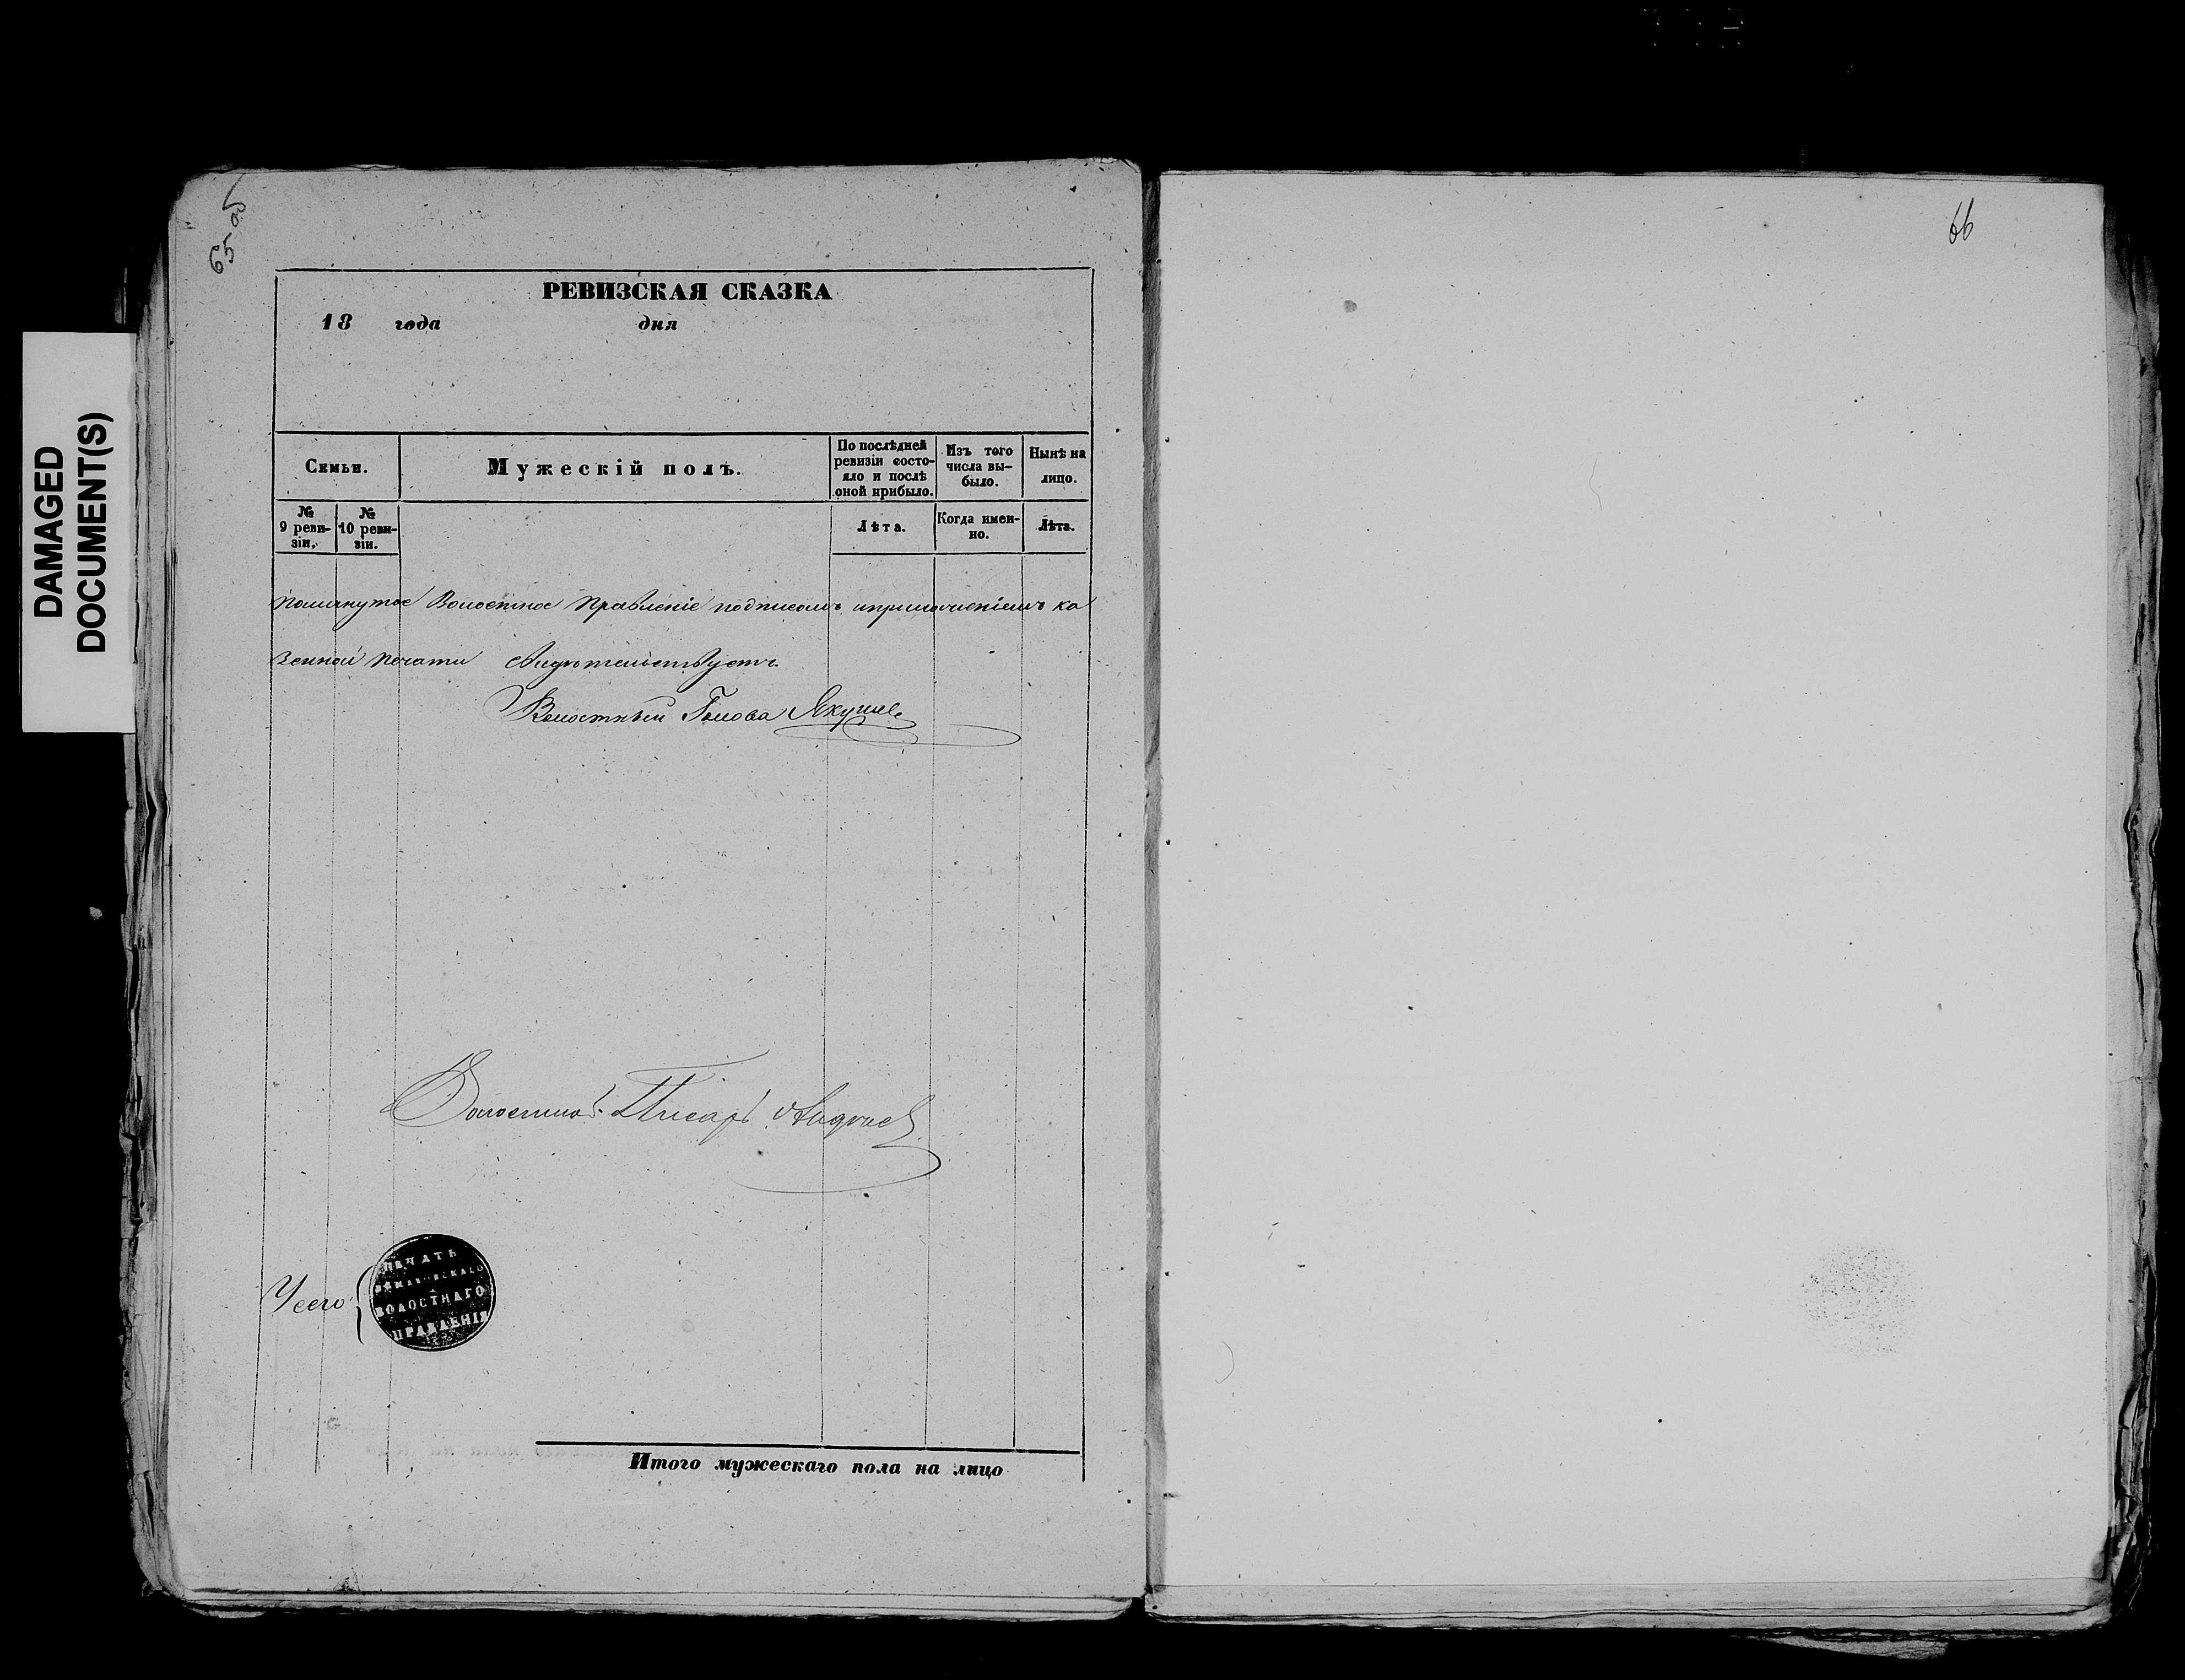 DAMAGED
DOCUMENT(S)
65 об
66
РЕВИЗСКАЯ СКАЗКА
18 года дня
Семьи.
Мужескій полъ.
По послѣдней
ревизіи состо-
яло и послѣ
оной прибыло.
Изъ того
числа вы-
было.
Нынѣ на
лицо.
№
9 реви-
зіи.
№
10 реви-
зіи.
Лѣта.
Когда имен-
но.
Лѣта.
помянутое Волостное Правленіе подписомъ и приложеніемъ ка
зенной печати свидѣтельствуетъ.
Волостный Голова
Волостной Писарь
ПЕЧАТЬ
ВОЛОСТНАГО
ПРАВЛЕНІЯ
Итого мужескаго пола на лицо